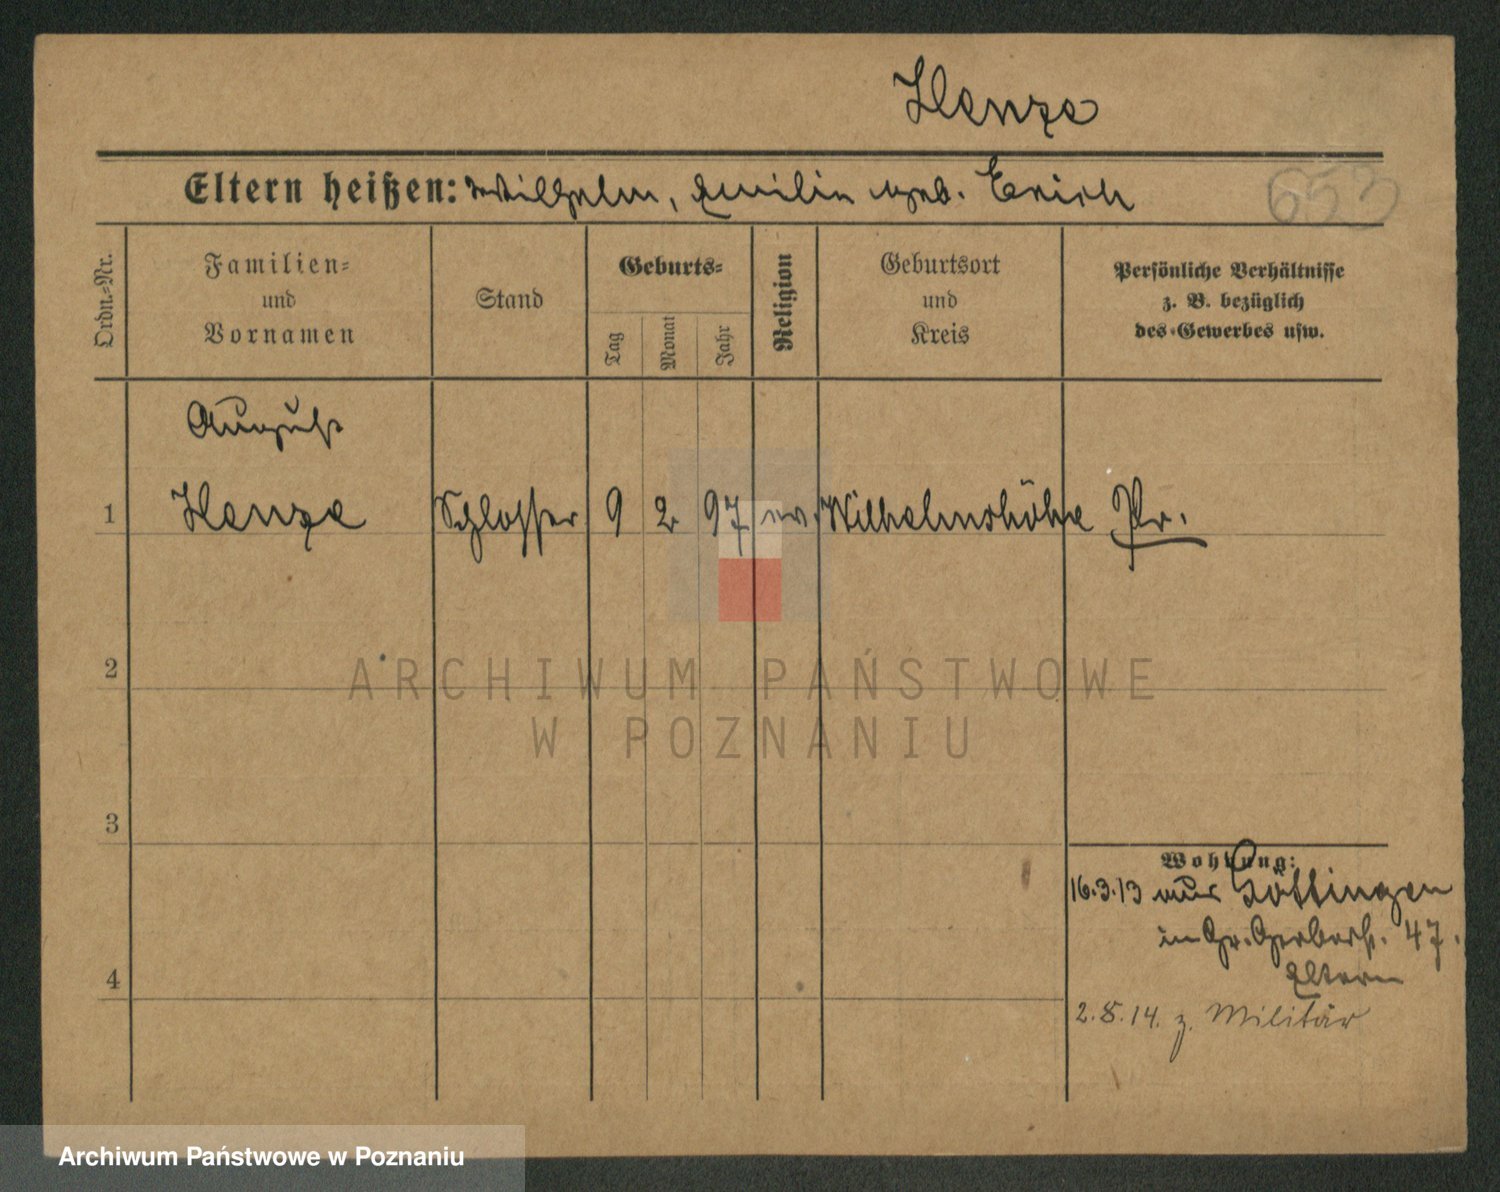 Henze
Eltern heißen: Wilhelm, Emilie geb. Erich
653
Ordn.-Nr.
Familien=
und
Vornamen
Stand
Geburts=
Tag
Monat
Jahr
Religion
Geburtsort
und
Kreis
Persönliche Verhältnisse
z. B. bezüglich
des Gewerbes usw.
August
1 Henze Schlosser 9 2 97 ev. Wilhelmshöhe Pr.
2
ARCHIWUM PAŃSTWOWE
W POZNANIU
3
Wohnung:
16.3.13 aus Göttingen
in Gr. Gerberst. 47.
Eltern
4
2.8.14. z. Militär
Archiwum Państwowe w Poznaniu